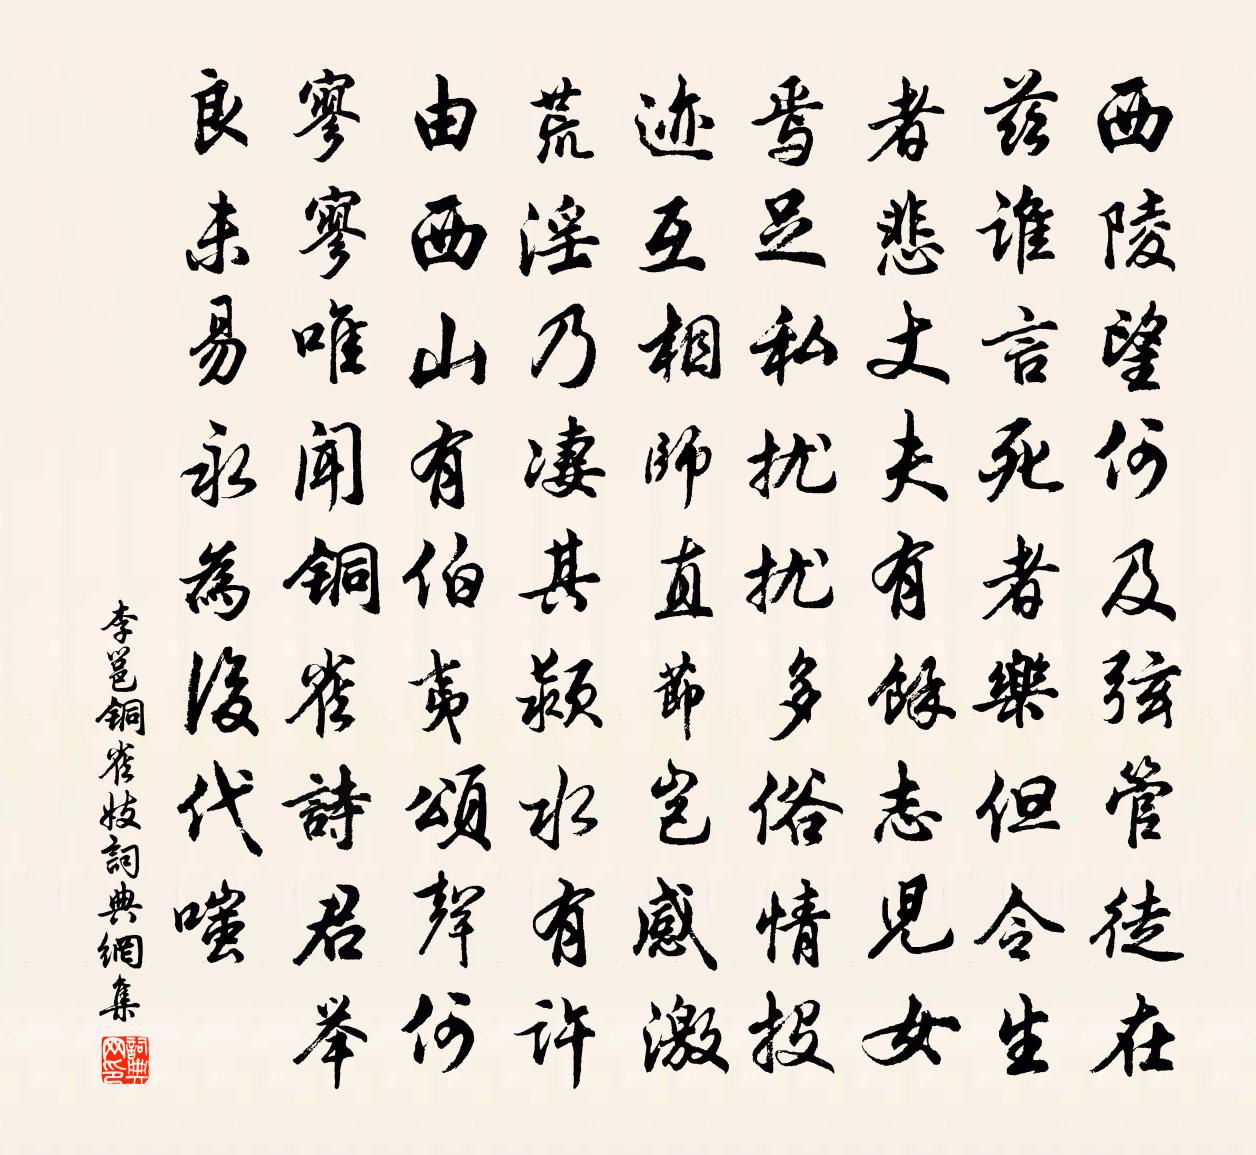 西陵望何及弦管徒在
兹谁言死者樂但令生
者悲丈夫有餘志兒女
焉足私扰扰多俗情投
迹互相師直節岂感激
荒淫乃凄其颍水有许
由西山有伯夷頌聲何
寥寥唯聞铜雀詩君举
良未易永為後代嗤
李邕铜雀妓詞典網集
詞典网印